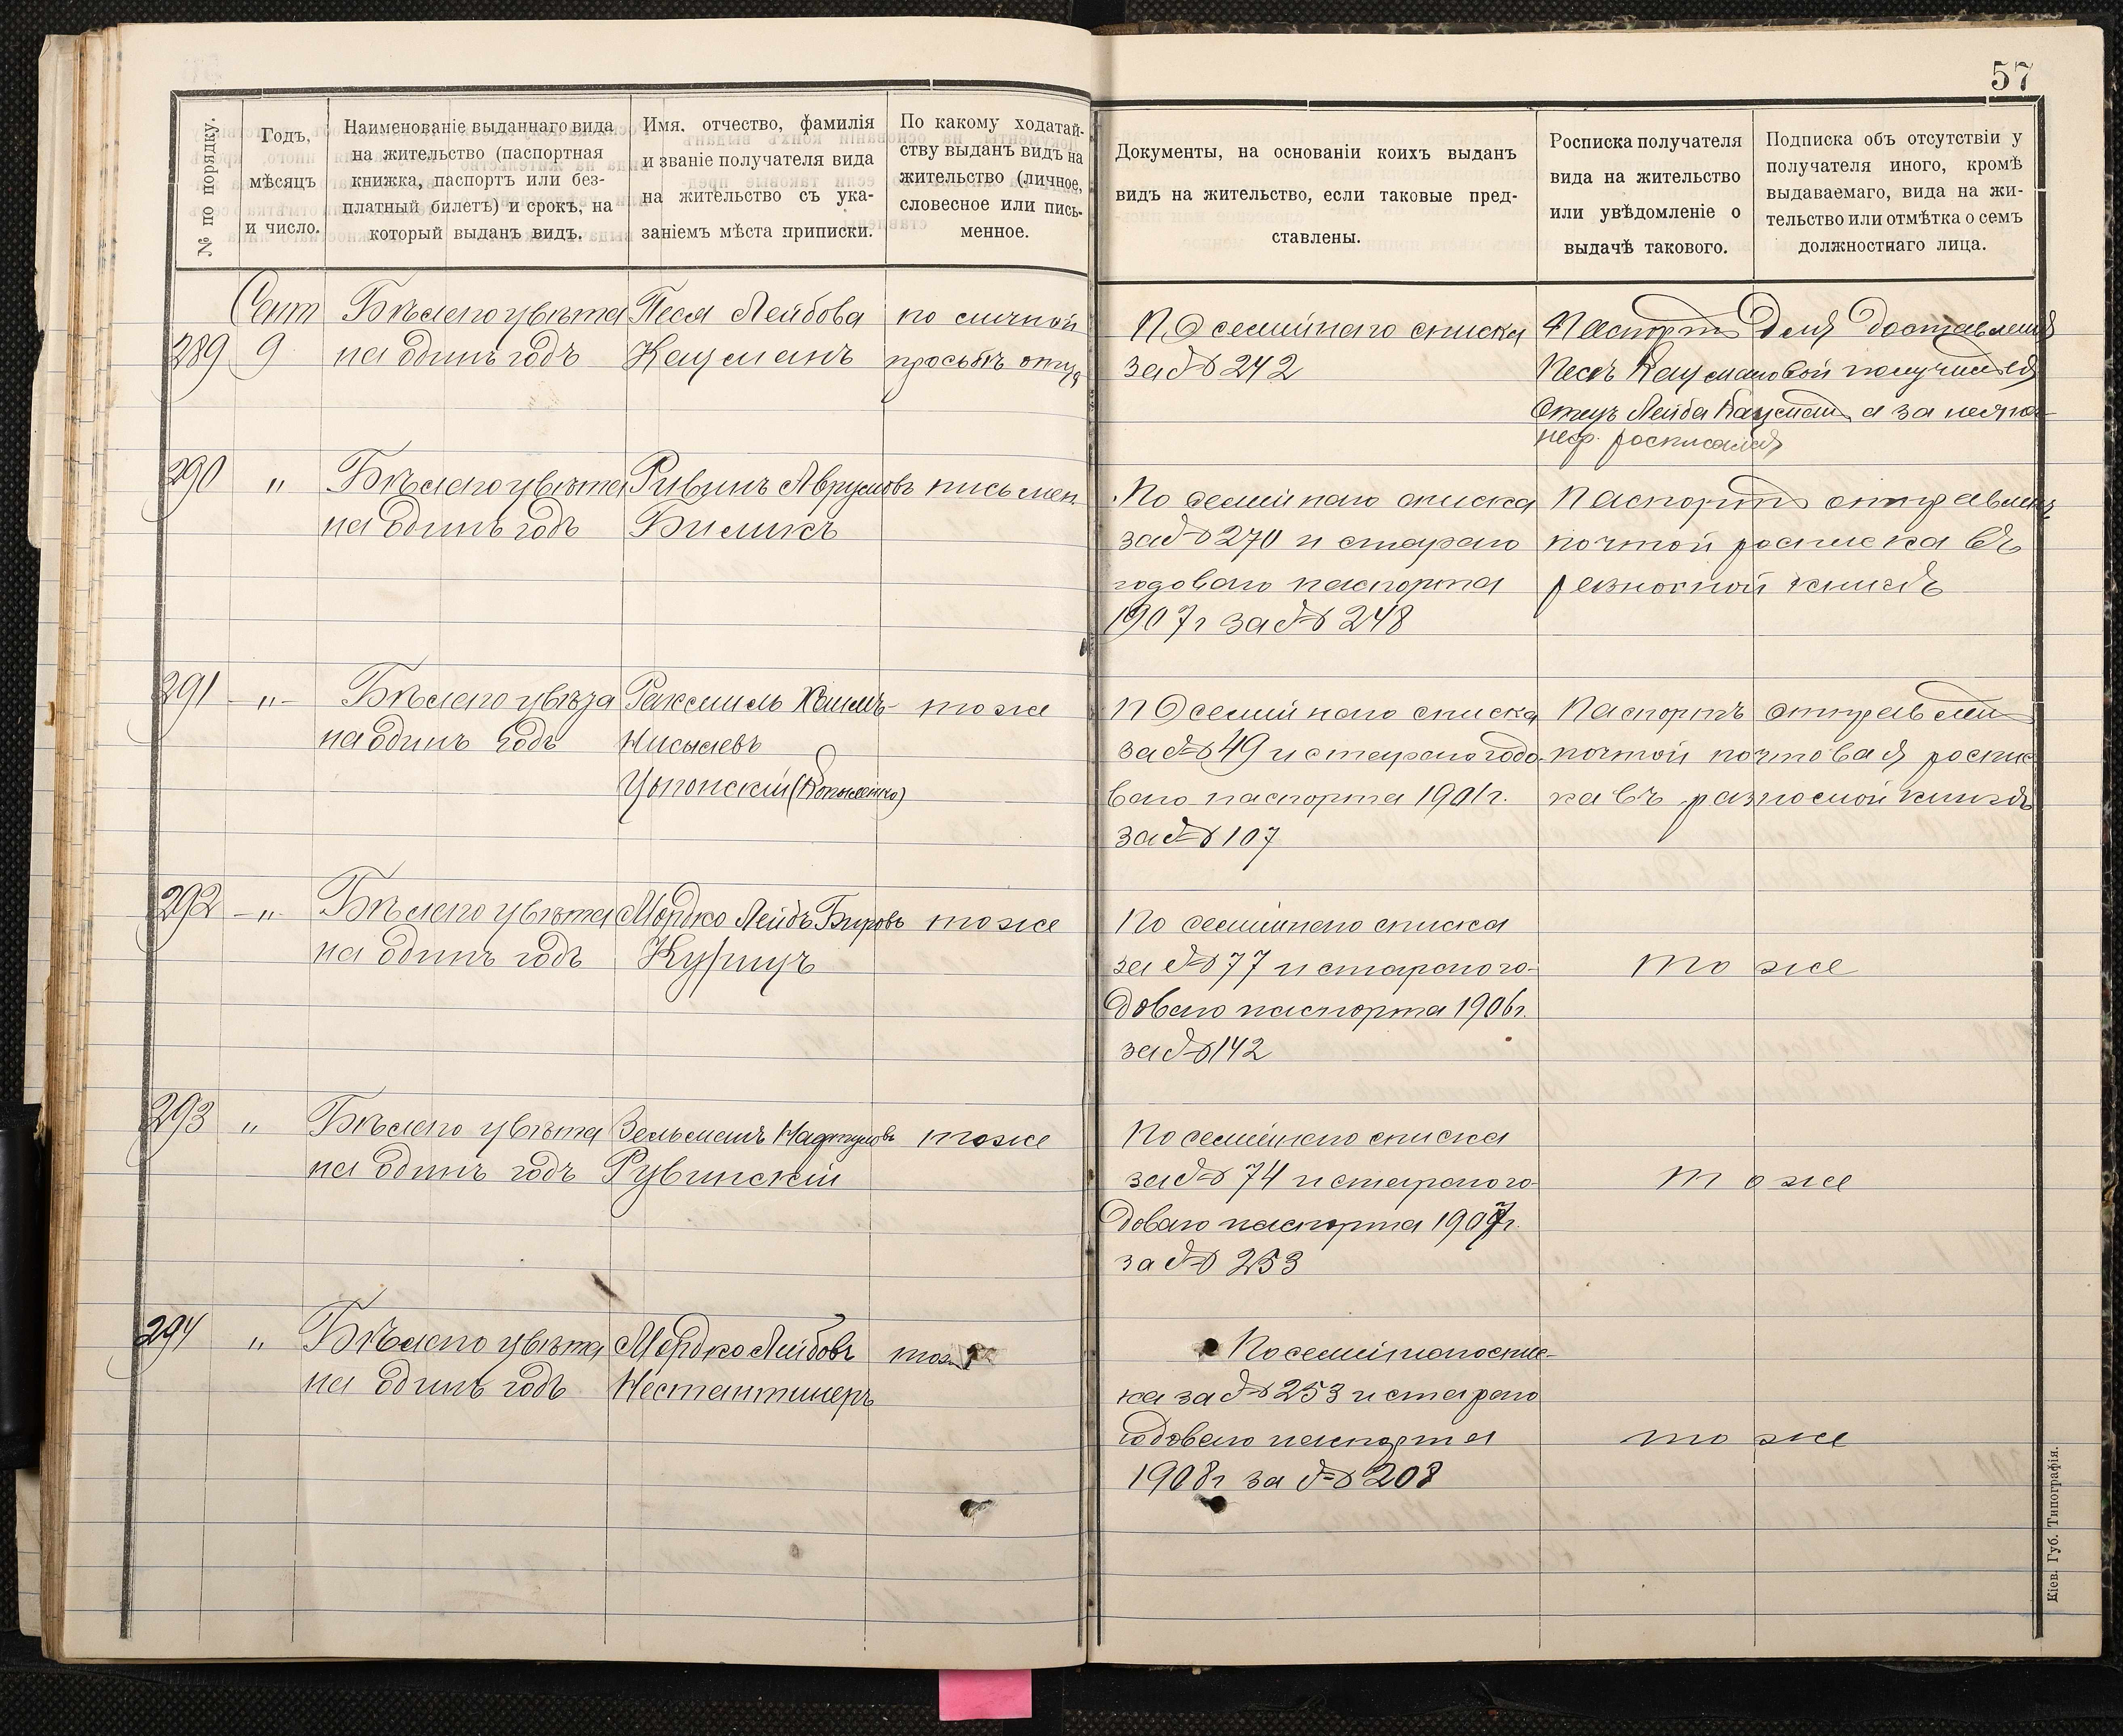 57
№ по порядку.
Годъ,
мѣсяцъ
и число.
Наименованіе выданнаго вида
на жительство (паспортная
книжка, паспортъ или без-
платный билетъ) и срокъ, на
который выданъ видъ.
Имя, отчество, фамилія
и званіе получателя вида
на жительство съ ука-
заніемъ мѣста приписки.
По какому ходатай-
ству выданъ видъ на
жительство (личное,
словесное или пись-
менное.
Документы, на основаніи коихъ выданъ
видъ на жительство, если таковые пред-
ставлены.
Росписка получателя
вида на жительство
или увѣдомленіе о
выдачѣ такового.
Подписка объ отсутствіи у
получателя иного, кромѣ
выдаваемаго, вида на жи-
тельство или отмѣтка о семъ
должностнаго лица.
Сент
289 9
Бѣлаго цвѣта
на одинъ годъ
Песя Лейбова
Кауманъ
по личной
просьбѣ отца
По семейнаго списка
за № 242
Паспортъ для доставленія
Песѣ Каумановой получилъ
Отецъ Лейба Кауманъ а за него
негр. росписался
290 "
Бѣлаго цвѣта
на одинъ годъ
Рувинъ Аврумовъ
Биликъ
письмен.
По семейнаго списка
за № 270 и стараго
годоваго паспорта
1907 г за № 248
Паспортъ отправленъ
почтой росписка въ
разносной книгѣ
291 -"-
Бѣлаго цвѣта
на одинъ годъ
Рахмиль Хаимъ-
Нисылевъ
тоже
По семейнаго списка
за № 49 и стараго годо-
ваго паспорта 1901 г.
за № 107
Паспортъ отправлен
почтой почтовая роспис
ка въ разносной книгѣ
292 -"-
Бѣлаго цвѣта
на одинъ годъ
Мордко Лейбъ Беровъ
Курицъ
тоже
По семейнаго списка
за № 77 и стараго го-
доваго паспорта 1906 г.
за № 142
тоже
293 "
Бѣлаго цвѣта
на одинъ годъ
Зельманъ Нафтуловъ
Рувинскій
тоже
По семейнаго списка
за № 74 и стараго го-
доваго паспорта 1907 г.
за № 253
тоже
294 "
Бѣлаго цвѣта
на одинъ годъ
Мордко Лейбовъ
Нестантинеръ
тоже
По семейнаго спис-
ка за № 253 и стараго
годоваго паспорта
1908 г за № 208
тоже
Кіев. Губ. Типографія.